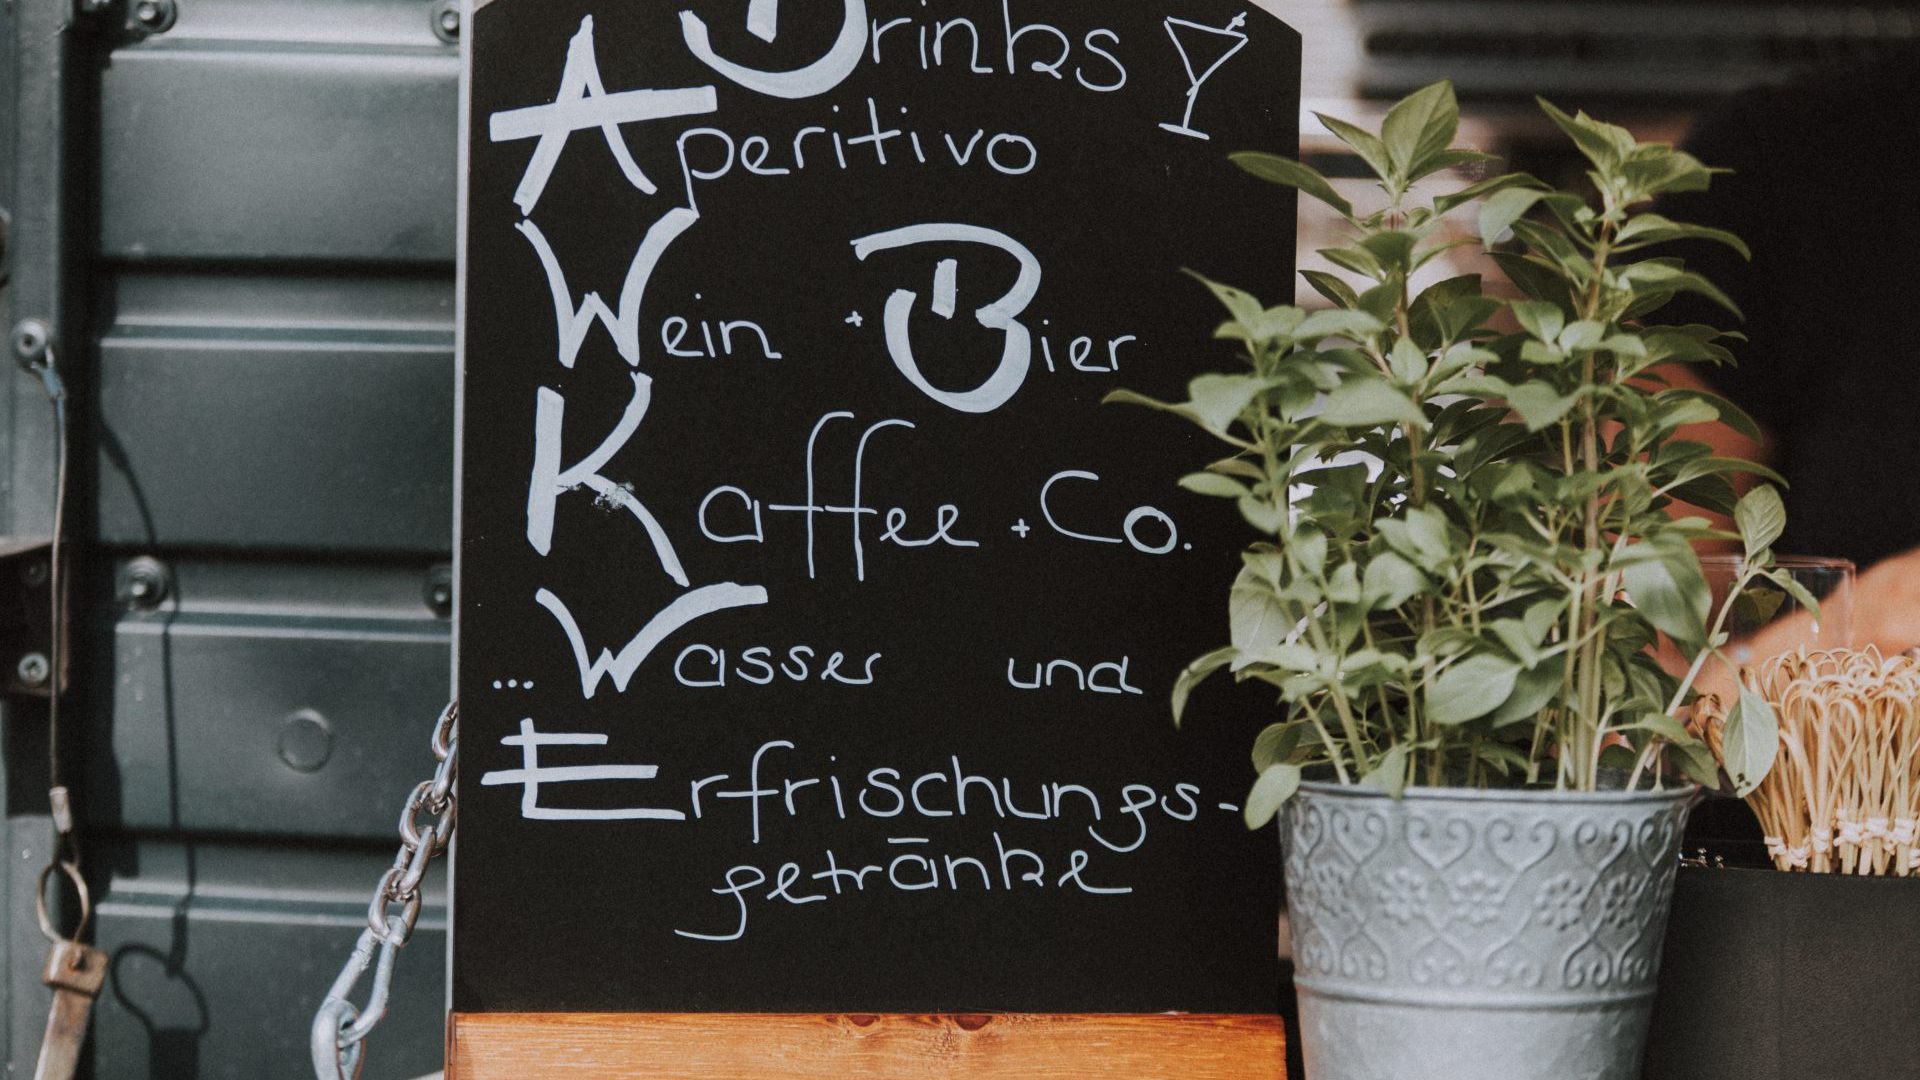 Drinks
Aperitivo
Wein + Bier
Kaffee + Co.
... Wasser und
Erfrischungs-
getränke